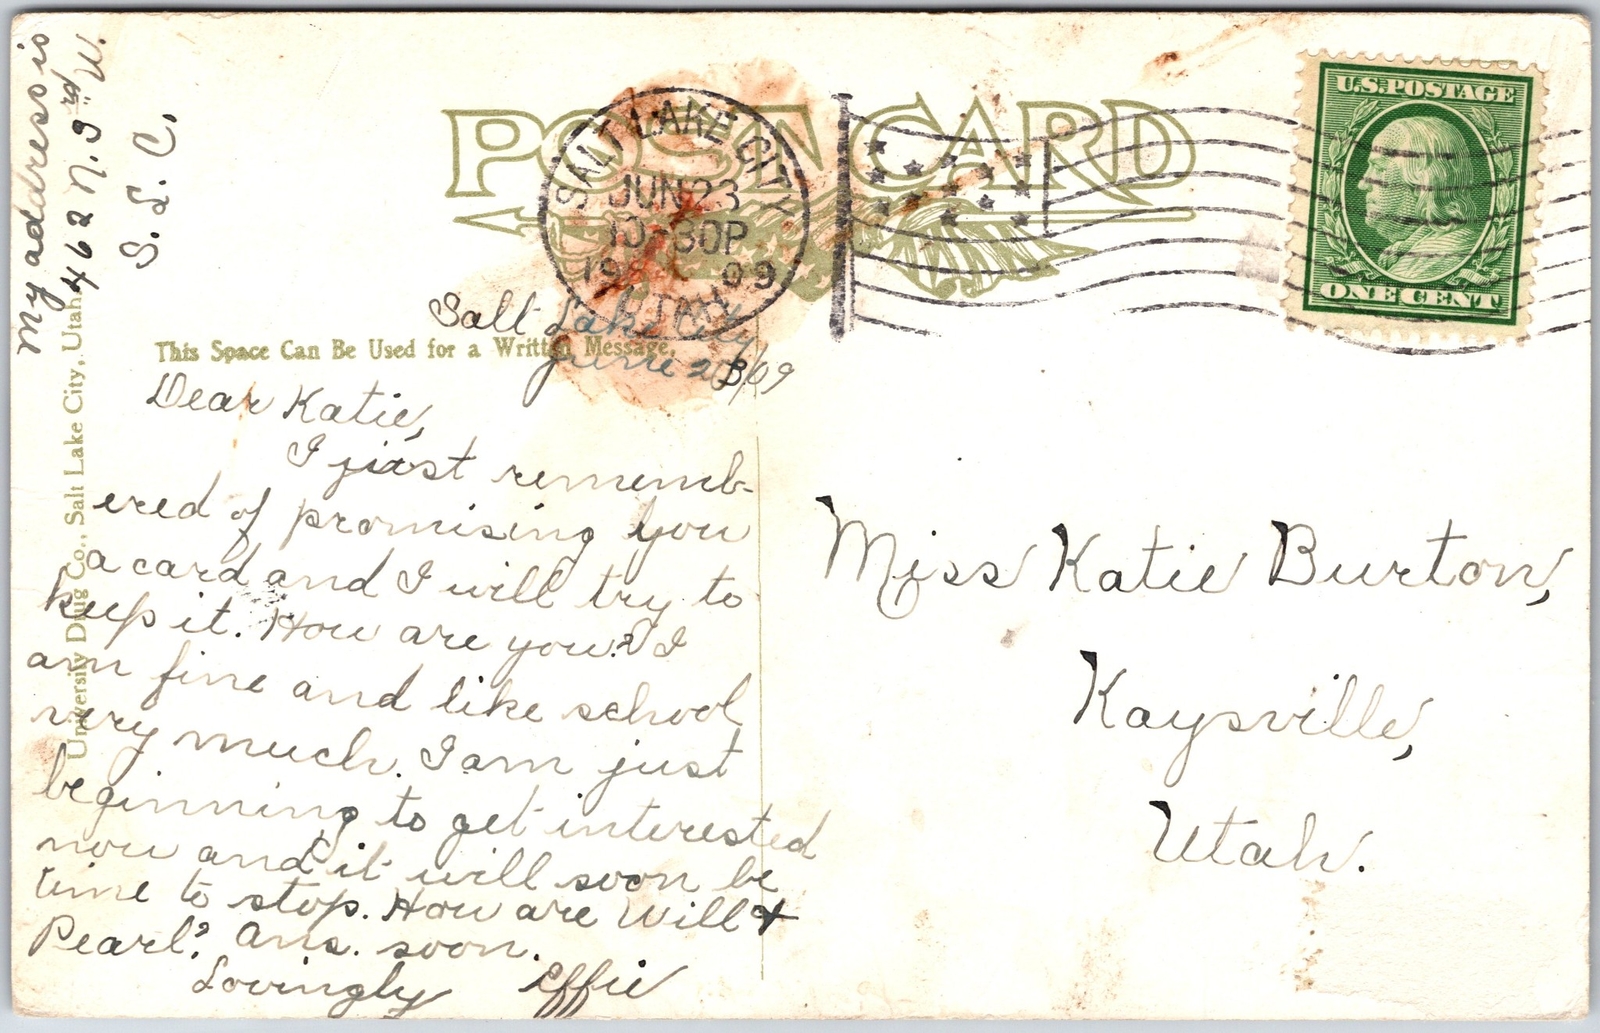 My address is
462 N. 3rd W.
S. L. C.
University Drug Co., Salt Lake City, Utah.
POST CARD
SALT LAKE CITY
JUN 23
10-30P
1909
UTAH
U.S. POSTAGE
ONE CENT
Salt Lake City
June 23/09
This Space Can Be Used for a Written Message.
Dear Katie,
I just rememb-
ered of promising you
a card and I will try to
keep it. How are you? I
am fine and like school
very much. I am just
beginning to get interested
now and it will soon be
time to stop. How are Will &
Pearl? Ans. soon.
Lovingly Effie
Miss Katie Burton,
Kaysville,
Utah.